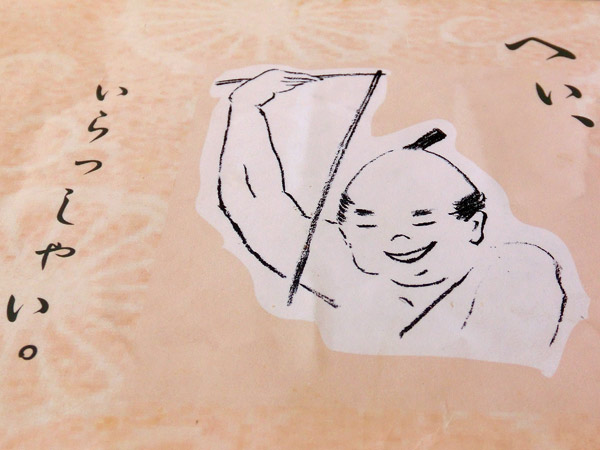 へい、
いらっしゃい。